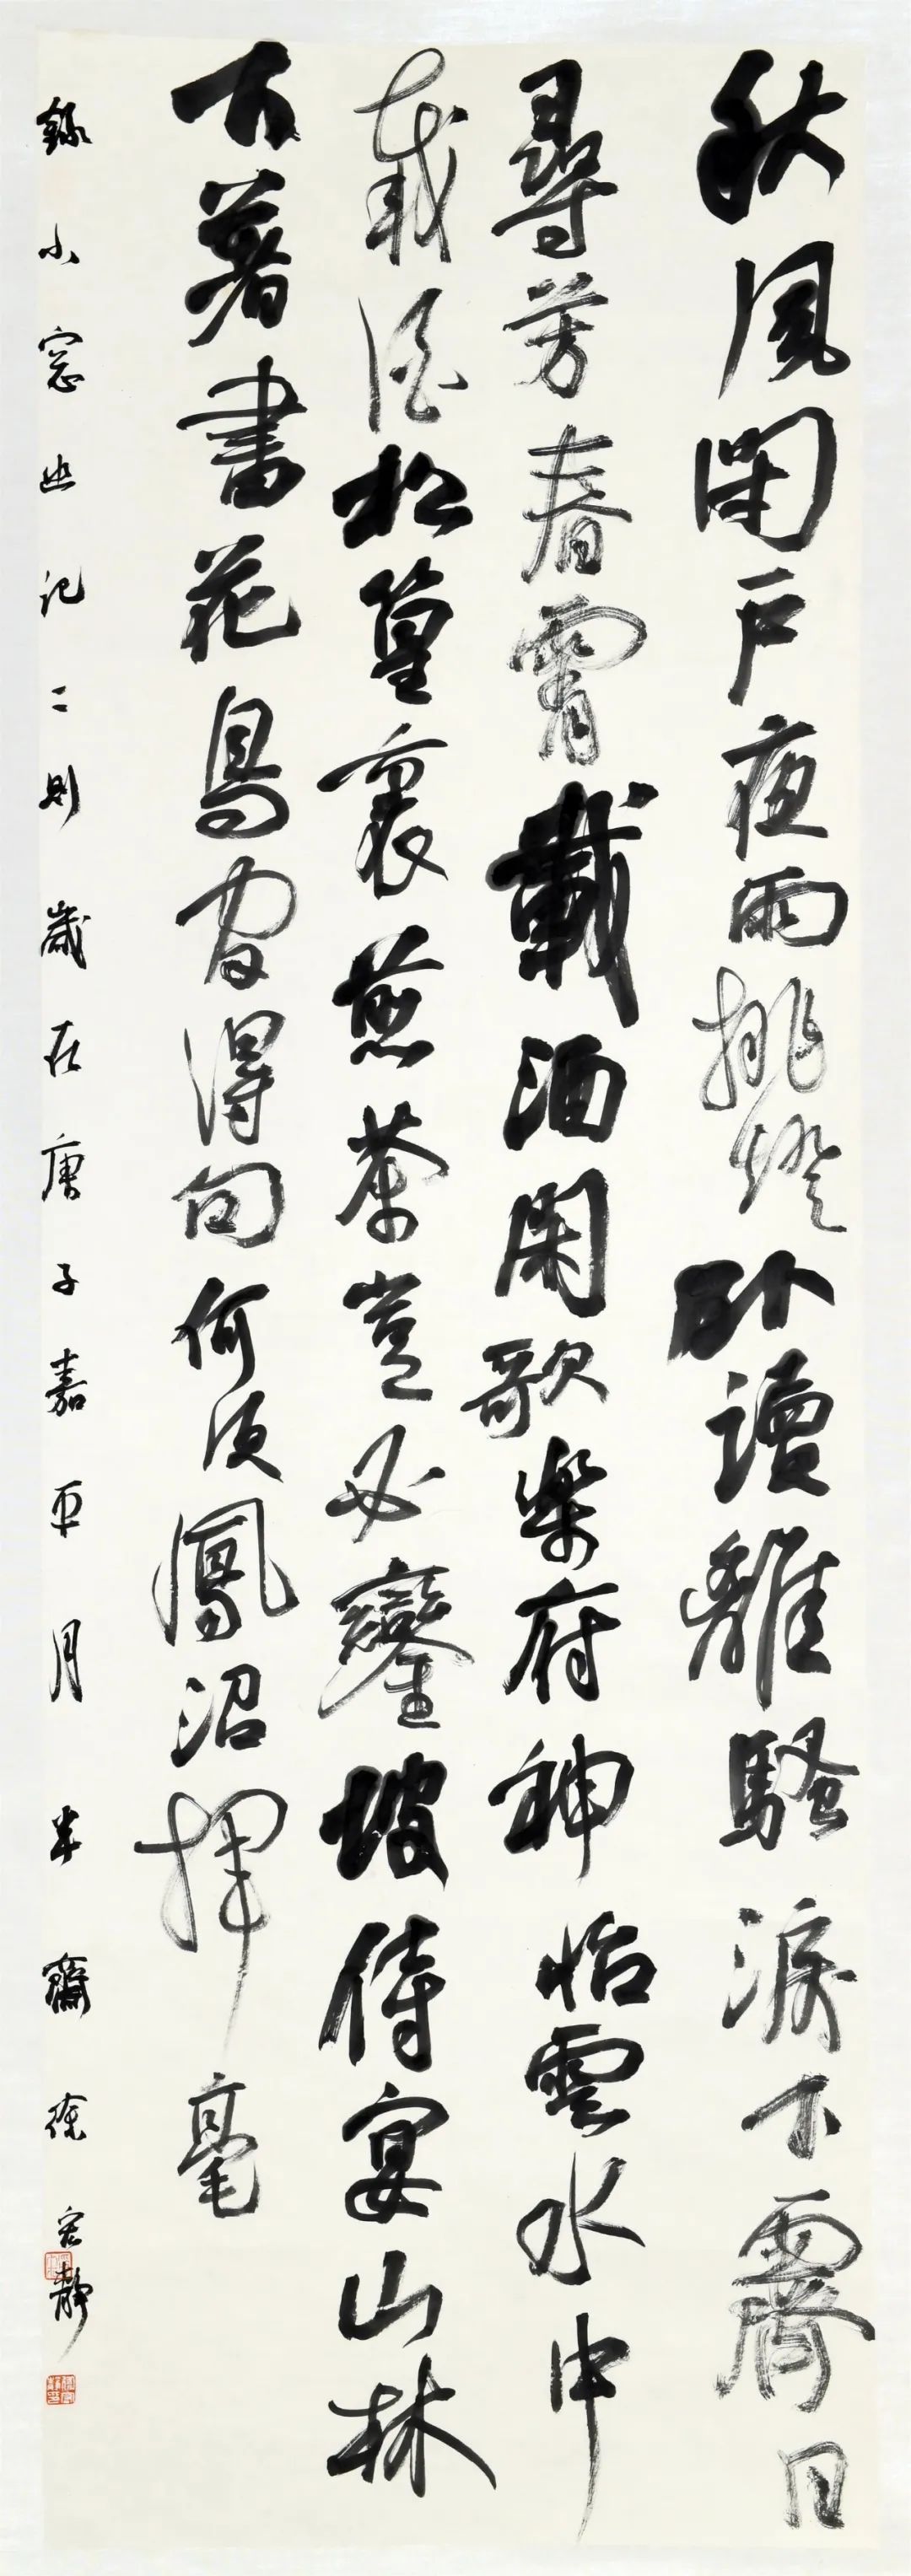 秋風閉戶夜雨挑燈臥讀離騷淚下霽日
尋芳春霄載酒閑歌樂府神怡雲水中
載酒松篁裏煎茶豈必鑾坡侍宴山林
下著書花鳥間得句何須鳳沼揮毫
錄小窓幽記二則歲在庚子嘉平月半齋徐宏靜